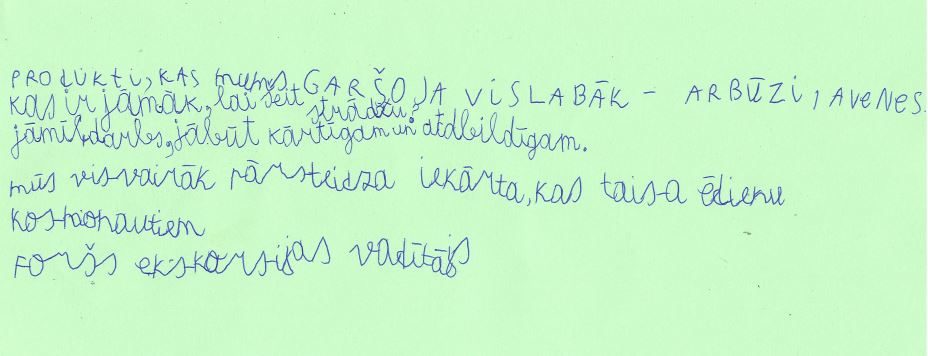 PRODUKTI, KAS mums GARŠOJA VISLABĀK - ARBŪZI, AVENES.
kas ir jāmāk, lai šeit strādātu?
jāmīl darbs, jābūt kārtīgam un atdbildīgam.
mūs visvairāk pārsteidza iekārta, kas taisa ēdienu
kosmonautiem
FORŠS ekskursijas vadītājs